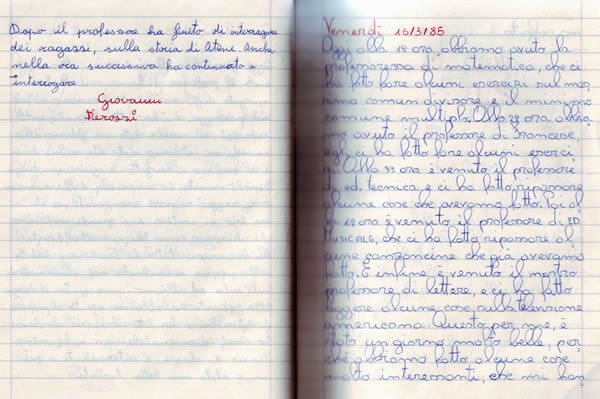 Dopo il professore ha finito di interrogare
dei ragazzi, sulla storia di Atene. Anche
nella ora successiva ha continuato a
interrogare
Giovanni
Derossi
Venerdì 15/3/85
Oggi alla 1ª ora, abbiamo avuto la
professoressa di matematica, che ci
ha fatto fare alcuni esercizi sul mas
simo comun divisore e il minimo
comune multiplo. Alla 2ª ora abbia
mo avuto il professore di Francese,
egli ci ha fatto fare alcuni eserci
zi. Alla 3ª ora è venuto il professore
di ed. tecnica e ci ha fatto ripassare
alcune cose che avevamo fatto. Poi al
la 4ª ora è venuto il professore di ED.
MUSICALE, che ci ha fatto ripassare al
cune canzoncine che già avevamo
fatto. E infine, è venuto il nostro
professore di lettere, e ci ha fatto
leggere alcune cose sulla televisione
americana. Questo per me, è
stato un giorno molto bello, per
che abbiamo fatto alcune cose
molto interessanti, che mi han